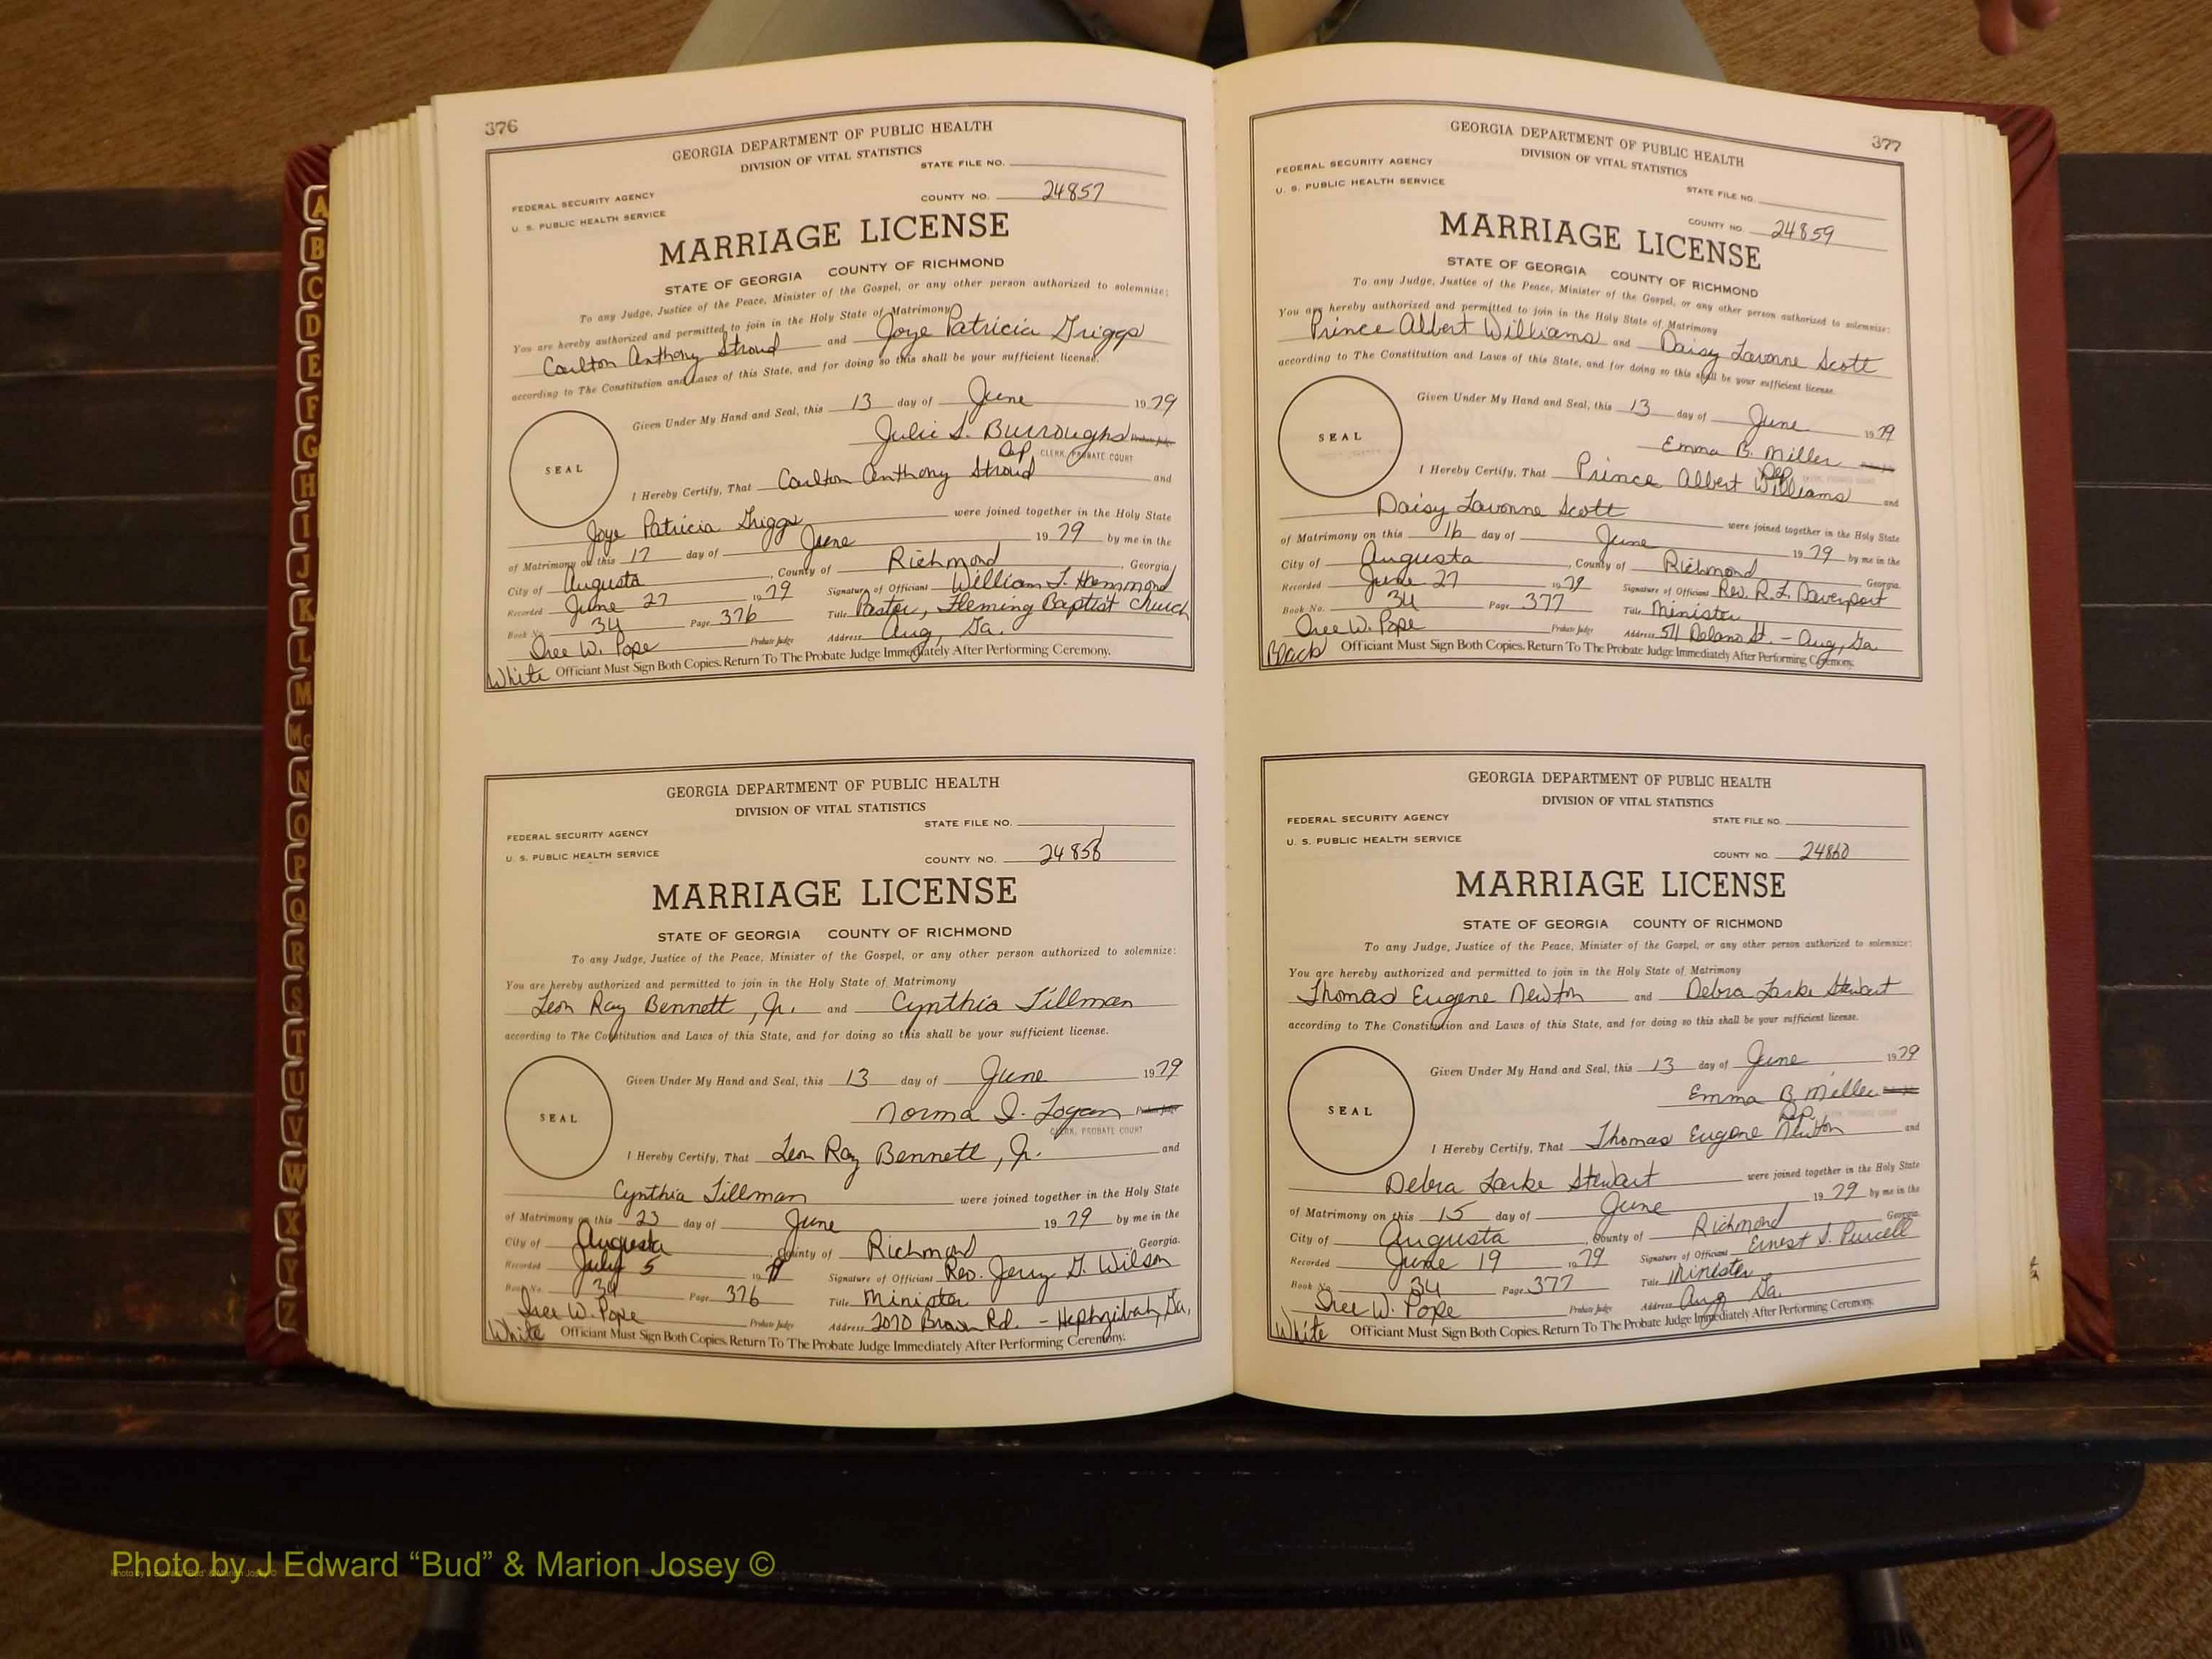 376
GEORGIA DEPARTMENT OF PUBLIC HEALTH
DIVISION OF VITAL STATISTICS
STATE FILE NO.
FEDERAL SECURITY AGENCY
COUNTY NO. 24857
U. S. PUBLIC HEALTH SERVICE
MARRIAGE LICENSE
STATE OF GEORGIA COUNTY OF RICHMOND
To any Judge, Justice of the Peace, Minister of the Gospel, or any other person authorized to solemnize:
You are hereby authorized and permitted to join in the Holy State of Matrimony
Carlton Anthony Stroud and Joye Patricia Griggs
according to The Constitution and Laws of this State, and for doing so this shall be your sufficient license.
Given Under My Hand and Seal, this 13 day of June 1979
Julie S. Burroughs Probate Judge
Dep. CLERK, PROBATE COURT
SEAL
I Hereby Certify, That Carlton Anthony Stroud and
Joye Patricia Griggs were joined together in the Holy State
of Matrimony on this 17 day of June 1979 by me in the
City of Augusta, County of Richmond, Georgia
Recorded June 27 1979 Signature of Officiant William T. Hammond
Book No. 34 Page 376 Title Pastor, Fleming Baptist Church
Iree W. Pope Probate Judge Address Aug, Ga.
White Officiant Must Sign Both Copies. Return To The Probate Judge Immediately After Performing Ceremony.
GEORGIA DEPARTMENT OF PUBLIC HEALTH
DIVISION OF VITAL STATISTICS
STATE FILE NO.
FEDERAL SECURITY AGENCY
U. S. PUBLIC HEALTH SERVICE
COUNTY NO. 24858
MARRIAGE LICENSE
STATE OF GEORGIA COUNTY OF RICHMOND
To any Judge, Justice of the Peace, Minister of the Gospel, or any other person authorized to solemnize:
You are hereby authorized and permitted to join in the Holy State of Matrimony
Leon Ray Bennett, Jr. and Cynthia Tillman
according to The Constitution and Laws of this State, and for doing so this shall be your sufficient license.
Given Under My Hand and Seal, this 13 day of June 1979
Norma I. Logan Probate Judge
CLERK, PROBATE COURT
SEAL
I Hereby Certify, That Leon Ray Bennett, Jr. and
Cynthia Tillman were joined together in the Holy State
of Matrimony on this 23 day of June 1979 by me in the
City of Augusta, County of Richmond Georgia.
Recorded July 5 1979 Signature of Officiant Rev. Jerry G. Wilson
Book No. 34 Page 376 Title Minister
Iree W. Pope Probate Judge Address 2070 Brown Rd. - Hephzibah, Ga,
White Officiant Must Sign Both Copies. Return To The Probate Judge Immediately After Performing Ceremony.
377
GEORGIA DEPARTMENT OF PUBLIC HEALTH
DIVISION OF VITAL STATISTICS
FEDERAL SECURITY AGENCY
U. S. PUBLIC HEALTH SERVICE
STATE FILE NO.
COUNTY NO. 24859
MARRIAGE LICENSE
STATE OF GEORGIA COUNTY OF RICHMOND
To any Judge, Justice of the Peace, Minister of the Gospel, or any other person authorized to solemnize:
You are hereby authorized and permitted to join in the Holy State of Matrimony
Prince Albert Williams and Daisy Lavonne Scott
according to The Constitution and Laws of this State, and for doing so this shall be your sufficient license.
Given Under My Hand and Seal, this 13 day of June 1979
Emma B. Miller
Dep. CLERK, PROBATE COURT
SEAL
I Hereby Certify, That Prince Albert Williams and
Daisy Lavonne Scott were joined together in the Holy State
of Matrimony on this 16 day of June 1979 by me in the
City of Augusta, County of Richmond Georgia.
Recorded June 27 1979 Signature of Officiant Rev. R. L. Davenport
Book No. 34 Page 377 Title Minister
Iree W. Pope Probate Judge Address 511 Delano St. - Aug, Ga
Black Officiant Must Sign Both Copies. Return To The Probate Judge Immediately After Performing Ceremony.
GEORGIA DEPARTMENT OF PUBLIC HEALTH
DIVISION OF VITAL STATISTICS
FEDERAL SECURITY AGENCY
STATE FILE NO.
U. S. PUBLIC HEALTH SERVICE
COUNTY NO. 24860
MARRIAGE LICENSE
STATE OF GEORGIA COUNTY OF RICHMOND
To any Judge, Justice of the Peace, Minister of the Gospel, or any other person authorized to solemnize:
You are hereby authorized and permitted to join in the Holy State of Matrimony
Thomas Eugene Newton and Debra Larke Stewart
according to The Constitution and Laws of this State, and for doing so this shall be your sufficient license.
Given Under My Hand and Seal, this 13 day of June 1979
Emma B. Miller
Dep. CLERK, PROBATE COURT
SEAL
I Hereby Certify, That Thomas Eugene Newton and
Debra Larke Stewart were joined together in the Holy State
of Matrimony on this 15 day of June 1979 by me in the
City of Augusta, County of Richmond Georgia
Recorded June 19 1979 Signature of Officiant Ernest S. Purcell
Book No. 34 Page 377 Title Minister
Iree W. Pope Probate Judge Address Aug Ga.
White Officiant Must Sign Both Copies. Return To The Probate Judge Immediately After Performing Ceremony.
A
B
C
D
E
F
G
H
I
J
K
L
M
Mc
N
O
P
Q
R
S
T
U
V
W
X
Y
Z
Photo by J Edward “Bud” & Marion Josey ©